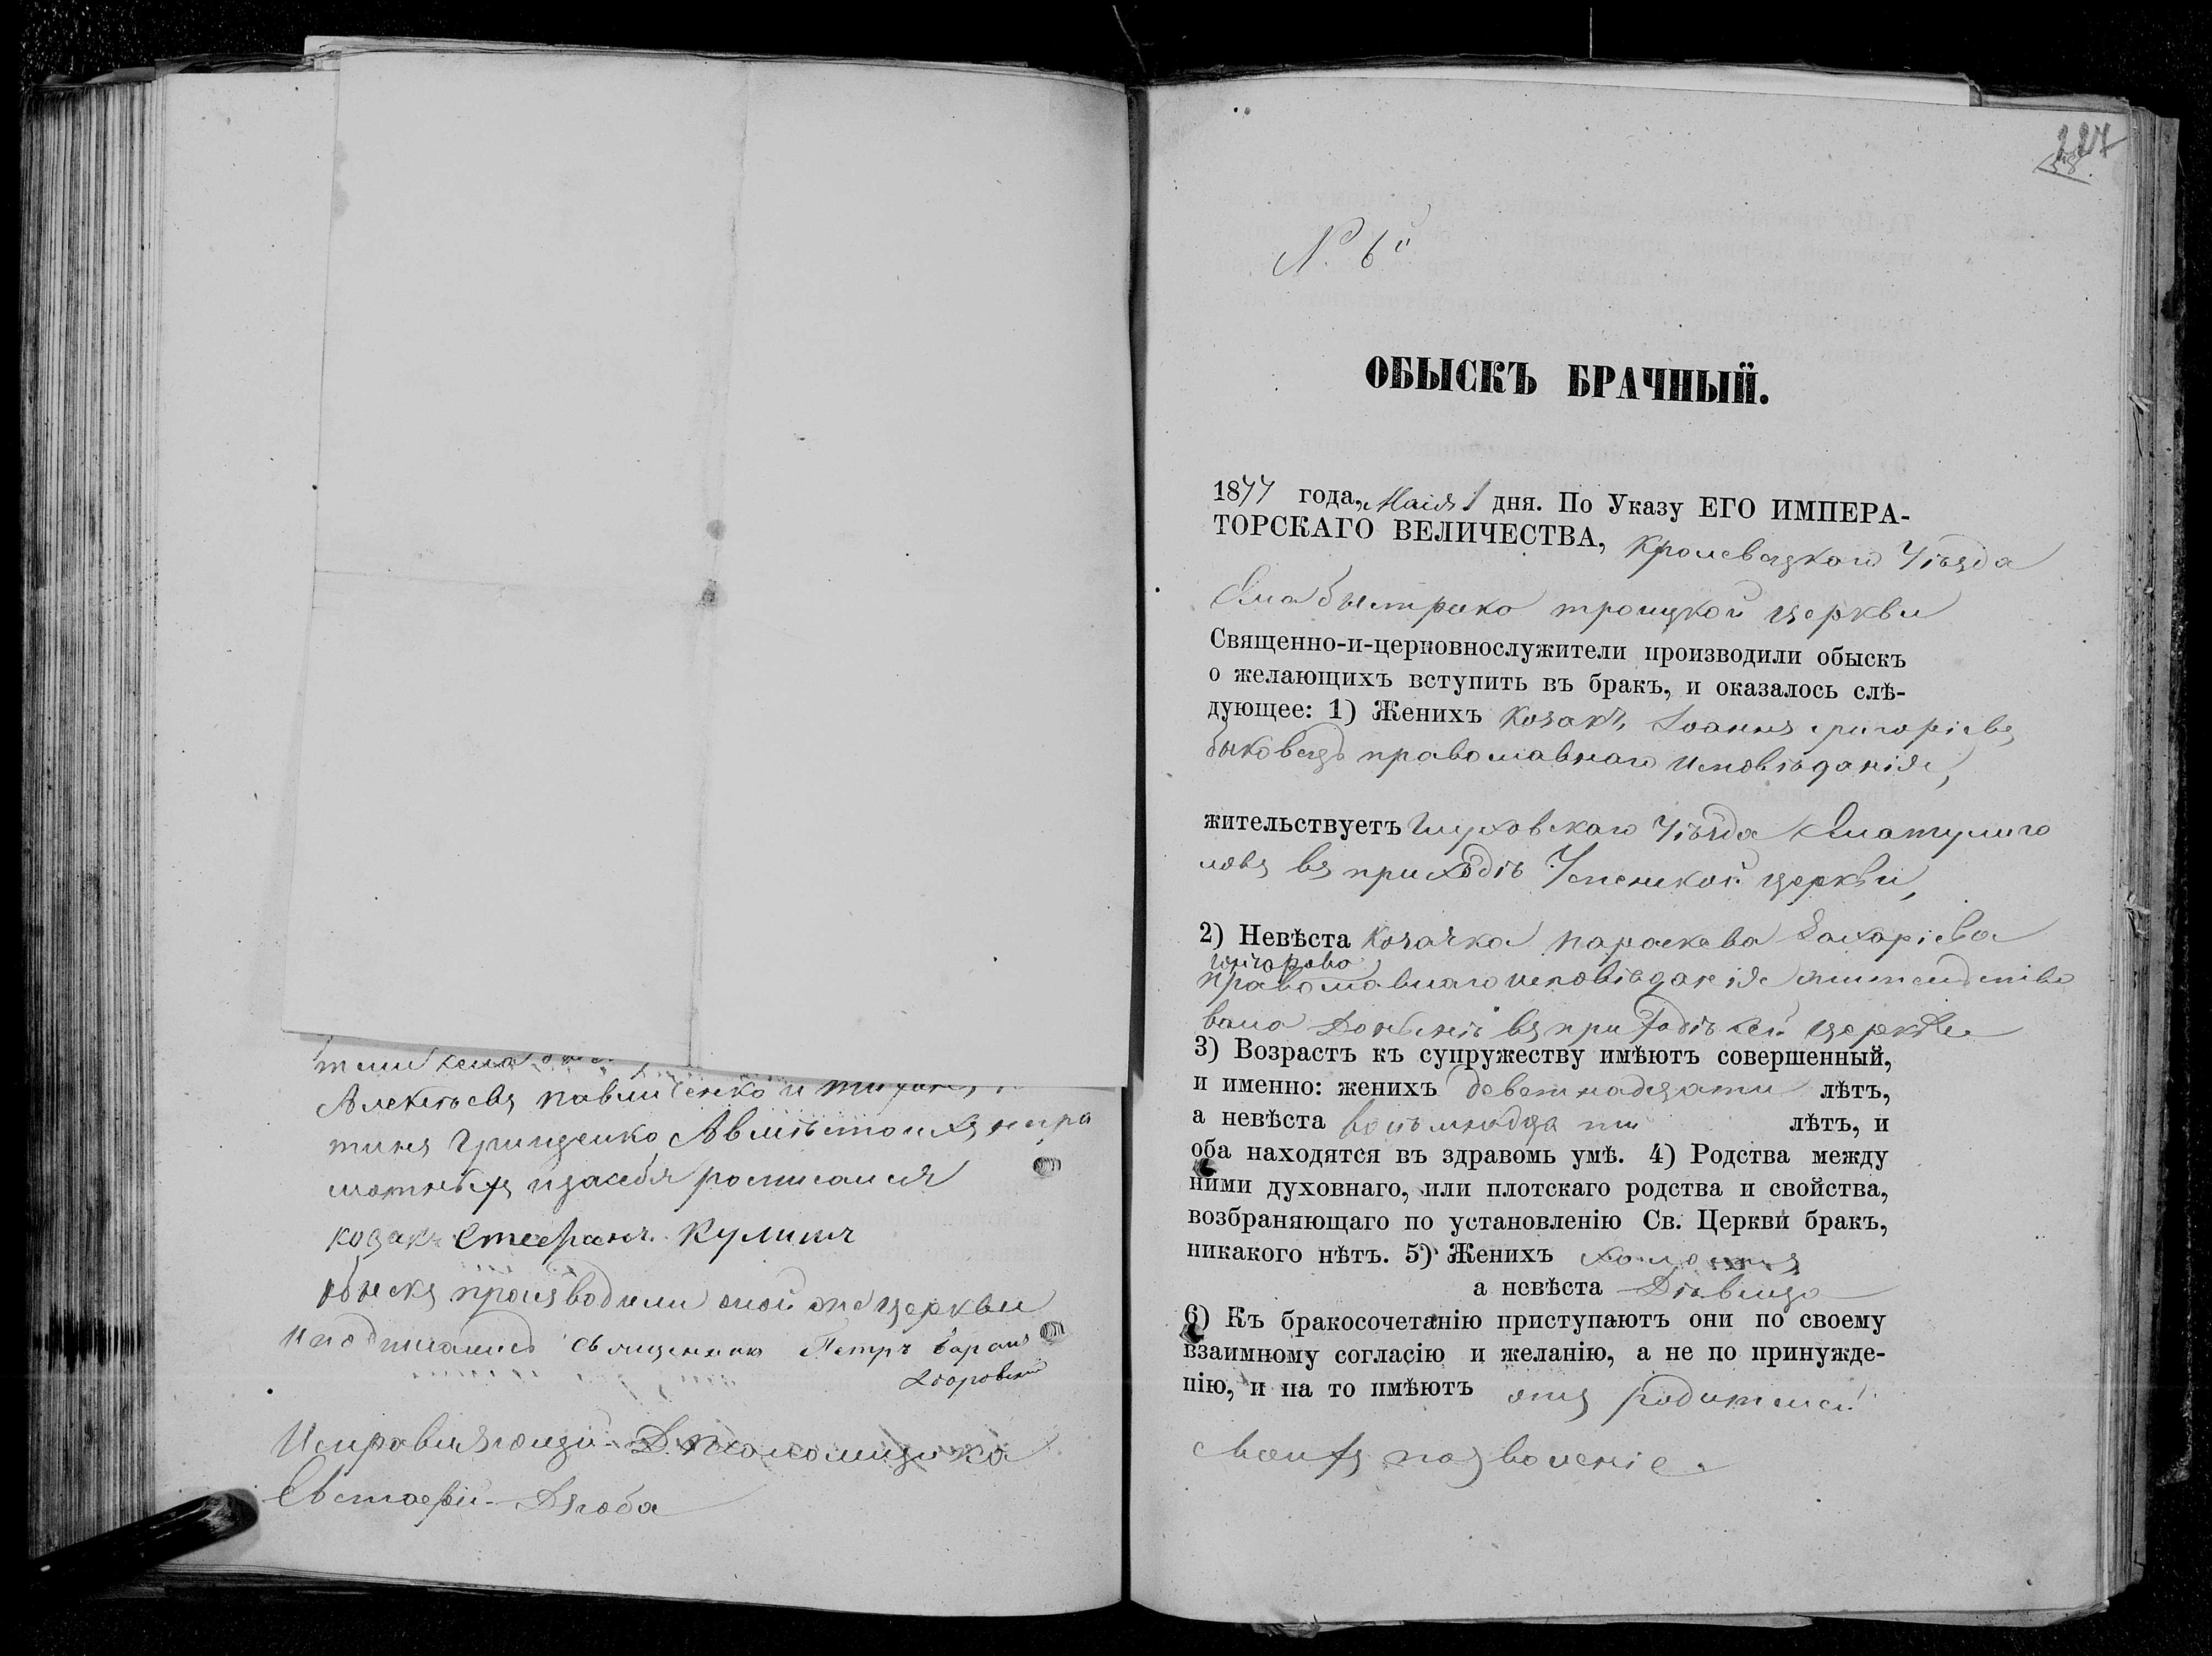 Алексѣевъ Павличенко и
тинъ Грищенко А вмѣсто ихъ негра
мотныхъ и за себя росписался
козакъ Стефанъ Кулишъ
Обыскъ производили оной же церкви
и подписались Священникъ Петръ Баран
Здоровскій
Исправляющій Д. Псаломщика
Евстафій Дзюба
227
N. 6й
ОБЫСКЪ БРАЧНЫЙ.
1877 года, Маія 1 дня. По Указу ЕГО ИМПЕРА-
ТОРСКАГО ВЕЛИЧЕСТВА, Кролевецкаго Уѣзда
Села быстрика троицкой церкви
Священно-и-церковнослужители производили обыскъ
о желающихъ вступить въ бракъ, и оказалось слѣ-
дующее: 1) Женихъ Козакъ Іоаннъ григоріевъ
быковецъ православнаго исповѣданія,
жительствуетъ Глуховскаго Уѣзда Села тулиго
ловъ въ приходѣ Успенской церкви,
2) Невѣста Козачка параскева Захаріева
гончарова
православнаго исповѣданія жительство
вала донынѣ въ приходѣ сей церкви
3) Возрастъ къ супружеству имѣютъ совершенный,
и именно: женихъ деветнадцати лѣтъ,
а невѣста восьмнадцати лѣтъ, и
оба находятся въ здравомъ умѣ. 4) Родства между
ними духовнаго, или плотскаго родства и свойства,
возбраняющаго по установленію Св. Церкви бракъ,
никакого нѣтъ. 5) Женихъ холостъ
а невѣста Дѣвица
6) Къ бракосочетанію приступаютъ они по своему
взаимному согласію и желанію, а не по принужде-
нію, и на то имѣютъ отъ родителей
своихъ позволеніе.